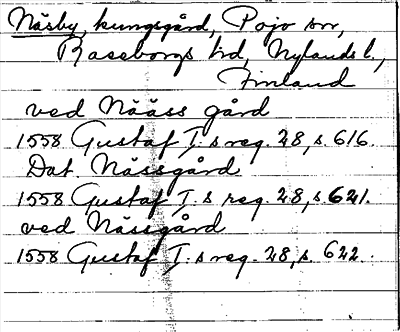 Näsby, kungsgård, Pojo srr,
Raseborgs hd, Nylands l.,
Finland
ved Nääss gård
1558 Gustaf I:s reg. 28, s. 616.
Dat. Nässgård
1558 Gustaf I:s reg. 28, s. 621.
ved Nässgård
1558 Gustaf I:s reg. 28, s. 622.